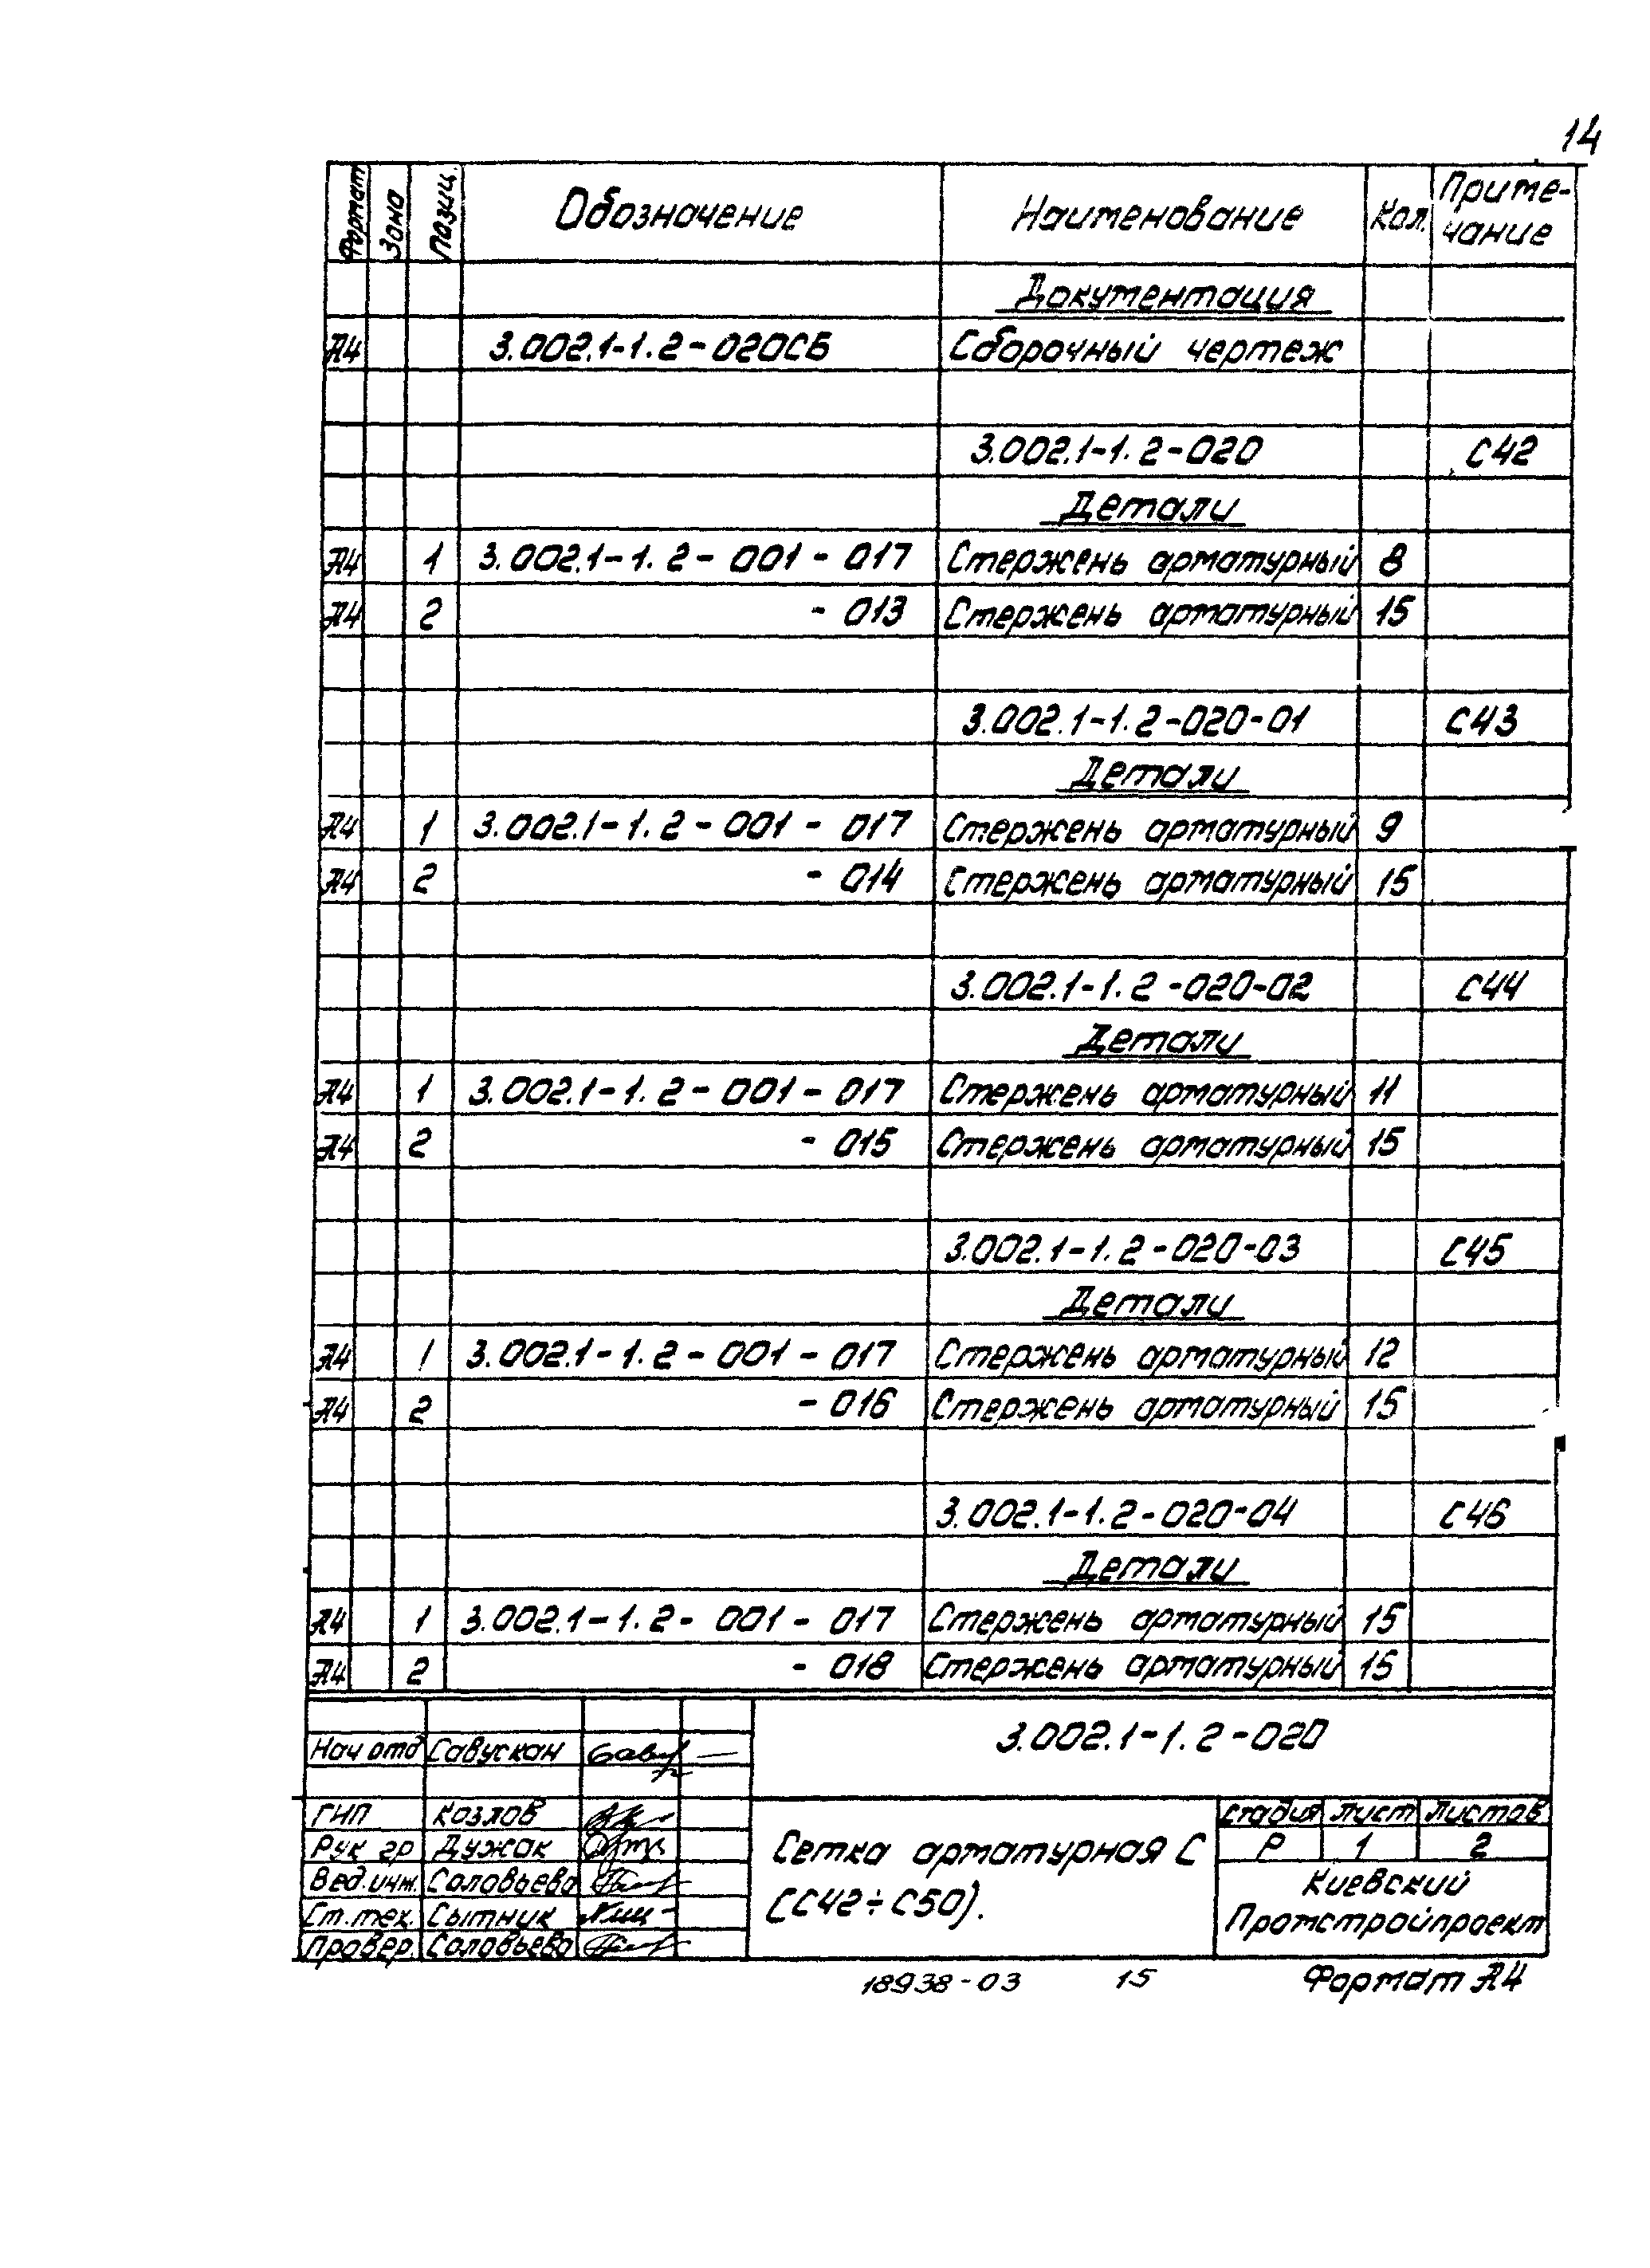 14
Формат Зона Позиц. Обозначение Наименование Кол. Приме-
чание
Документация
А4 3.002.1-1.2-020СБ Сборочный чертеж
3.002.1-1.2-020 С42
Детали
А4 1 3.002.1-1.2-001-017 Стержень арматурный 8
А4 2 -013 Стержень арматурный 15
3.002.1-1.2-020-01 С43
Детали
А4 1 3.002.1-1.2-001-017 Стержень арматурный 9
А4 2 -014 Стержень арматурный 15
3.002.1-1.2-020-02 С44
Детали
А4 1 3.002.1-1.2-001-017 Стержень арматурный 11
А4 2 -015 Стержень арматурный 15
3.002.1-1.2-020-03 С45
Детали
А4 1 3.002.1-1.2-001-017 Стержень арматурный 12
А4 2 -016 Стержень арматурный 15
3.002.1-1.2-020-04 С46
Детали
А4 1 3.002.1-1.2-001-017 Стержень арматурный 15
А4 2 -018 Стержень арматурный 15
3.002.1-1.2-020
Нач отд Савускан
ГИП Козлов
Рук гр Дужак
Вед.инж. Соловьева
Ст.тех. Сытник
Провер. Соловьева
Сетка арматурная С
(С42÷С50).
Стадия Лист Листов
Р 1 2
Киевский
Промстройпроект
18938-03 15 Формат А4